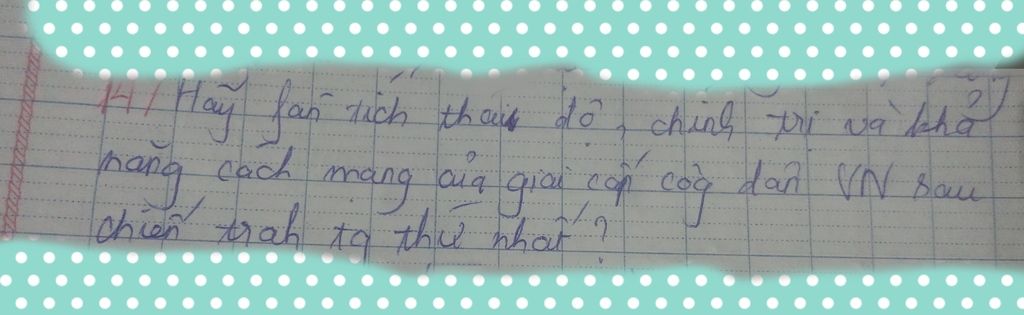 14/ Hãy fân tích thái độ, chính trị và khả
năng cách mạng của giai cấp côg dân VN sau
chiến trah tg thứ nhất?